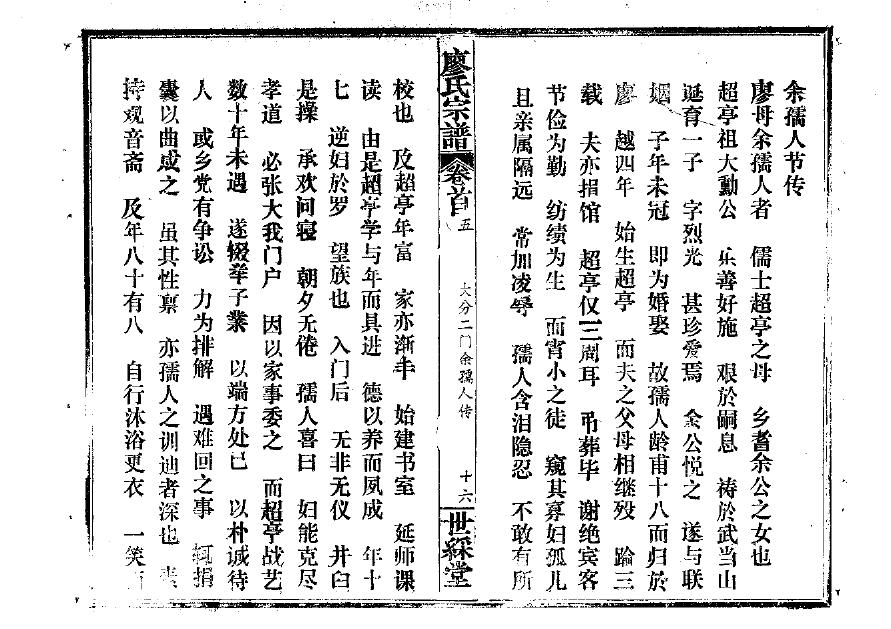 余孺人节传
廖母余孺人者　儒士超亭之母　乡耆余公之女也
超亭祖大勳公　乐善好施　艰於嗣息　祷於武当山
诞育一子　字烈光　甚珍爱焉　余公悦之　遂与联
姻　子年未冠　即为婚娶　故孺人龄甫十八而归於
廖　越四年　始生超亭　而夫之父母相继殁　踰三
载　夫亦捐馆　超亭仅三周耳　吊葬毕　谢绝宾客
节俭为勤　纺绩为生　而宵小之徒　窥其寡妇孤儿
且亲属隔远　常加凌辱　孺人含泪隐忍　不敢有所
廖氏宗譜　卷首　五　大分二门余孺人传　十六　世綵堂
校也　及超亭年富　家亦渐丰　始建书室　延师课
读　由是超亭学与年而具进　德以养而夙成　年十
七　逆妇於罗　望族也　入门后　无非无仪　井臼
是操　承欢问寝　朝夕无倦　孺人喜曰　妇能克尽
孝道　必张大我门户　因以家事委之　而超亭战艺
数十年未遇　遂辍举子业　以端方处己　以朴诚待
人　或乡党有争讼　力为排解　遇难回之事　捐
囊以曲成之　虽其性禀　亦孺人之训迪者深也
持观音斋　及年八十有八　自行沐浴更衣　一笑